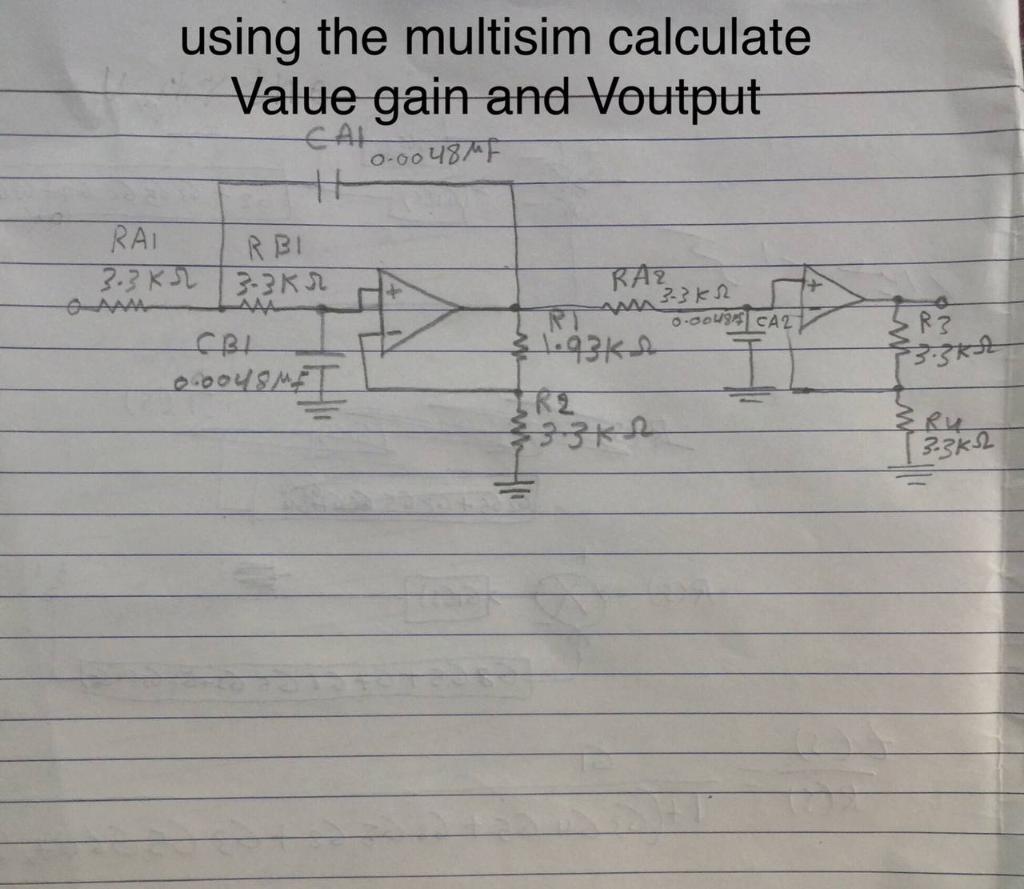 using the multisim calculate
Value gain and Voutput
CA1
0.0048μf
RA1
3.3KΩ
RB1
3.3KΩ
+
-
CB1
0.0048μf
R1
1.93KΩ
R2
3.3KΩ
RA2
3.3KΩ
0.0048μf
CA2
+
-
R3
3.3KΩ
R4
3.3KΩ